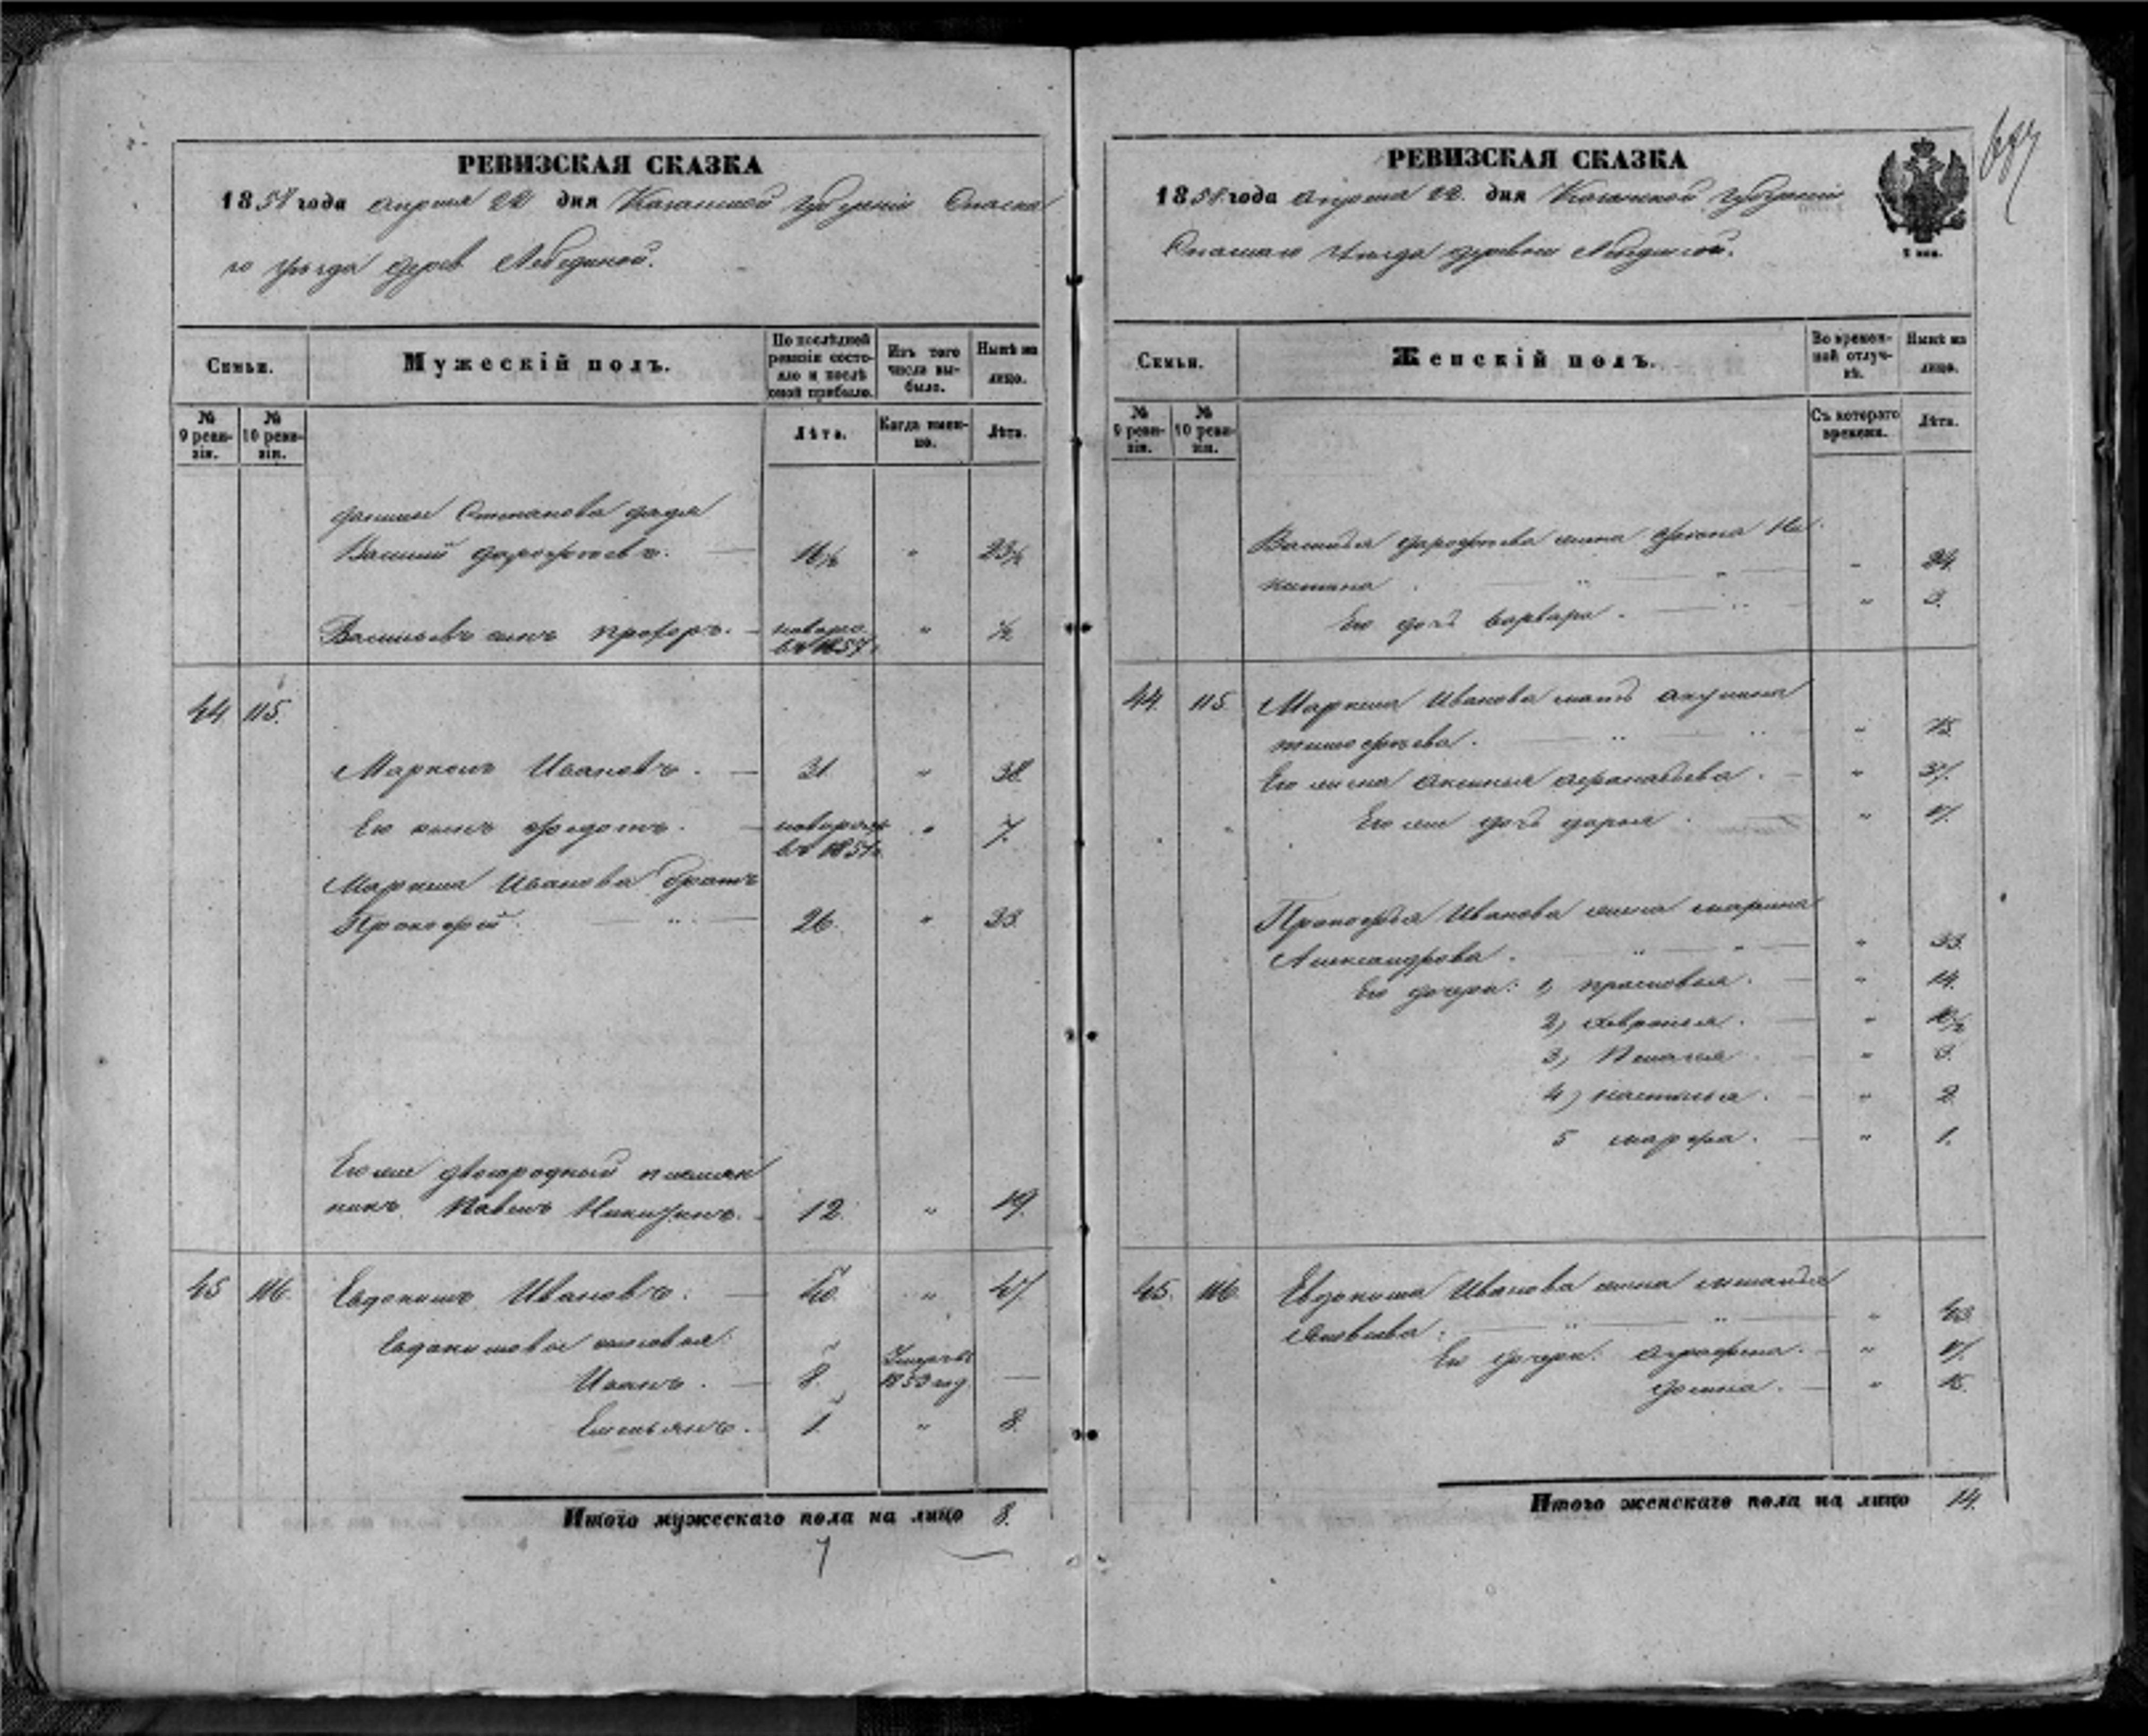 РЕВИЗСКАЯ СКАЗКА
1858 года апреля 22 дня Казанской губернии Спаска
го уезда дерев Лебединой.
Семьи.
Мужескій полъ.
По послѣдней ревизіи состояло и послѣ оной прибыло.
Изъ того числа выбыло.
Нынѣ на лицо.
№ 9 ревизіи.
№ 10 ревизіи.
Лѣта.
Когда именно.
Лѣта.
Степанова дядя
Василий Дорофеевъ. 16½ " 23½
Васильевъ сынъ Прохоръ. новорож. въ 1857 г. " ½
44. 115.
Маркелъ Ивановъ. 31. " 38.
Его сынъ Федотъ. новорож. въ 1851 г. " 7.
Маркела Иванова братъ
Прокофий. " 26. " 33.
Его же двоюродный племян
никъ Павелъ Никитинъ. 12. " 19.
45 116. Евдокимъ Ивановъ. 40. " 47.
Евдокимовы сыновья:
Иванъ. 8. Умеръ въ 1853 год —
Емельянъ. 1. " 8.
Итого мужескаго пола на лицо 8.
7
РЕВИЗСКАЯ СКАЗКА
1858 года апреля 22. дня Казанской губернии
Спаскаго уезда деревни Лебединой.
Семьи.
Женскій полъ.
Во временной отлучкѣ.
Нынѣ на лицо.
№ 9 ревизіи.
№ 10 ревизіи.
Съ котораго времени.
Лѣта.
Василья Дорофеева жена Фекла Ни
китина " 24.
Его дочь Варвара. " 3.
44. 115. Маркела Иванова мать Акулина
Тимофеева. " 75.
Его жена Аксинья Афанасьева. " 37.
Его же дочь Дарья. " 17.
Прокофья Иванова жена Марина
Александрова. " 33.
Его дочери: 1, Прасковья. " 14.
2, Хавронья. " 10½
3, Пелагея. " 3.
4) Настасья. " 2.
5 Марфа. " 1.
45. 116. Евдокима Иванова жена Меланья
Яковлева: " 43
Его дочери: Аграфена. " 17.
Домна. " 15.
Итого женскаго пола на лицо 14.